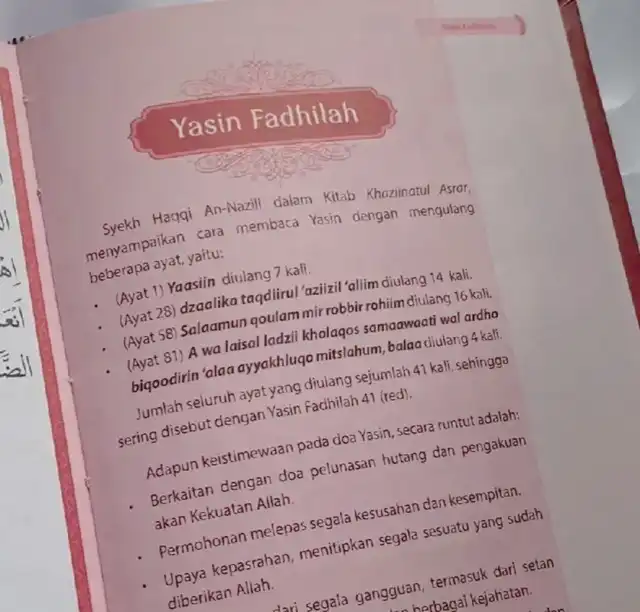 Yasin Fadhilah
Syekh Haqqi An-Nazili dalam Kitab Khaziinatul Asrar,
menyampaikan cara membaca Yasin dengan mengulang
beberapa ayat, yaitu:
• (Ayat 1) Yaasiin diulang 7 kali.
• (Ayat 28) dzaalika taqdiirul 'aziizil 'aliim diulang 14 kali.
• (Ayat 58) Salaamun qoulam mir robbir rohiim diulang 16 kali.
• (Ayat 81) A wa laisal ladzii kholaqos samaawaati wal ardho
biqoodirin 'alaa ayyakhluqo mitslahum, balaa diulang 4 kali.
Jumlah seluruh ayat yang diulang sejumlah 41 kali, sehingga
sering disebut dengan Yasin Fadhilah 41 (red).
Adapun keistimewaan pada doa Yasin, secara runtut adalah:
• Berkaitan dengan doa pelunasan hutang dan pengakuan
akan Kekuatan Allah.
• Permohonan melepas segala kesusahan dan kesempitan.
• Upaya kepasrahan, menitipkan segala sesuatu yang sudah
diberikan Allah.
dari segala gangguan, termasuk dari setan
berbagai kejahatan.